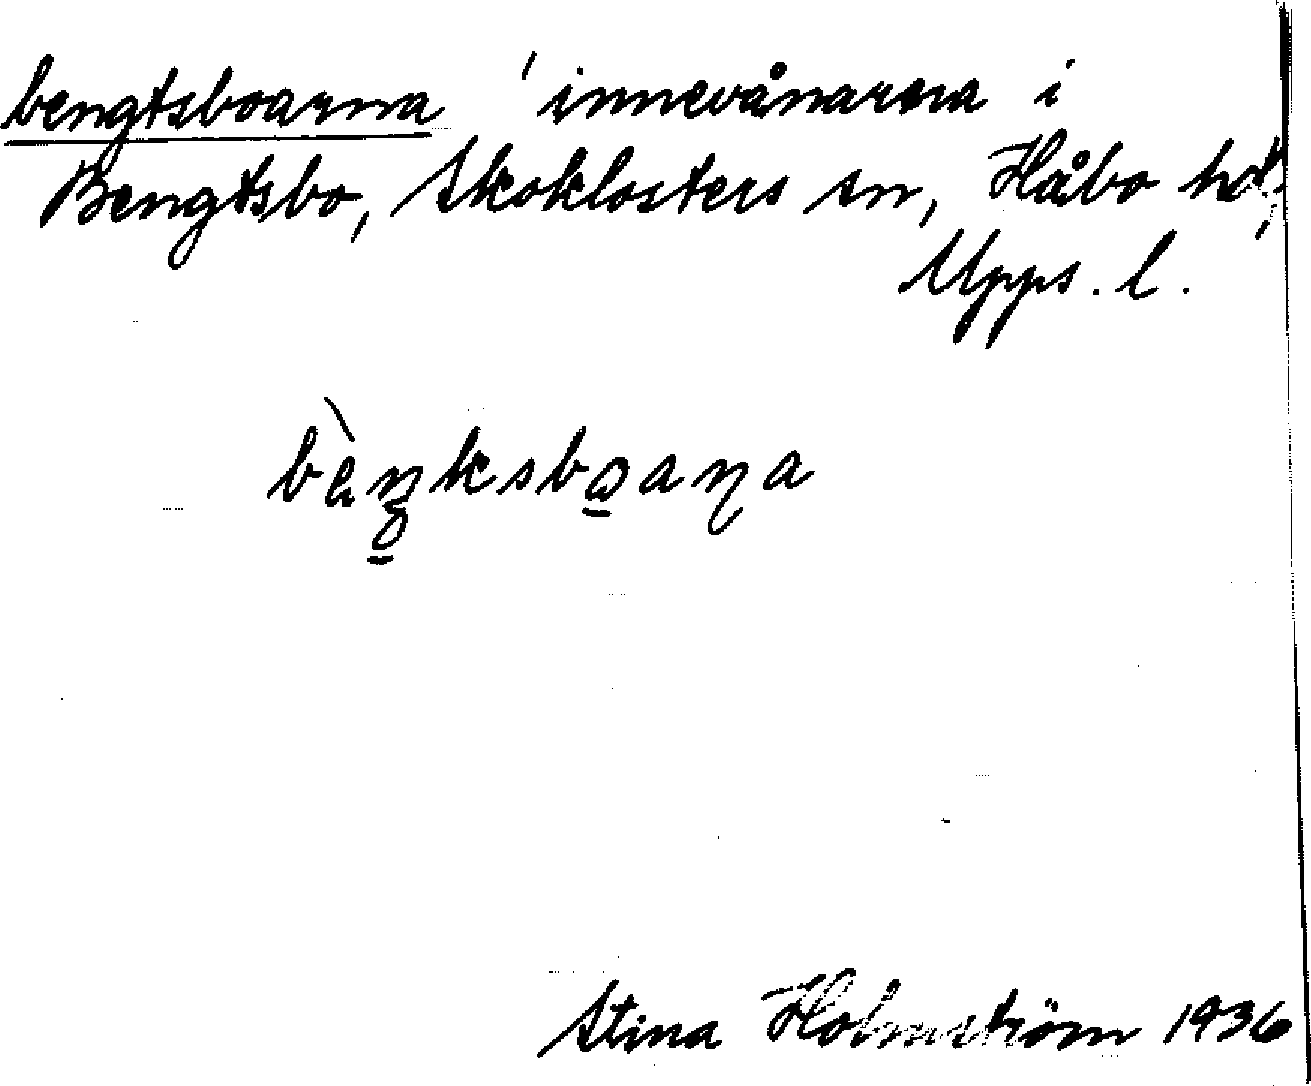 bengtsboarna 'innevånarna i
Bengtsbo, Skoklosters sn, Håbo hd,
Upps. l.
bèŋksboaɳa
Stina Holmström 1936